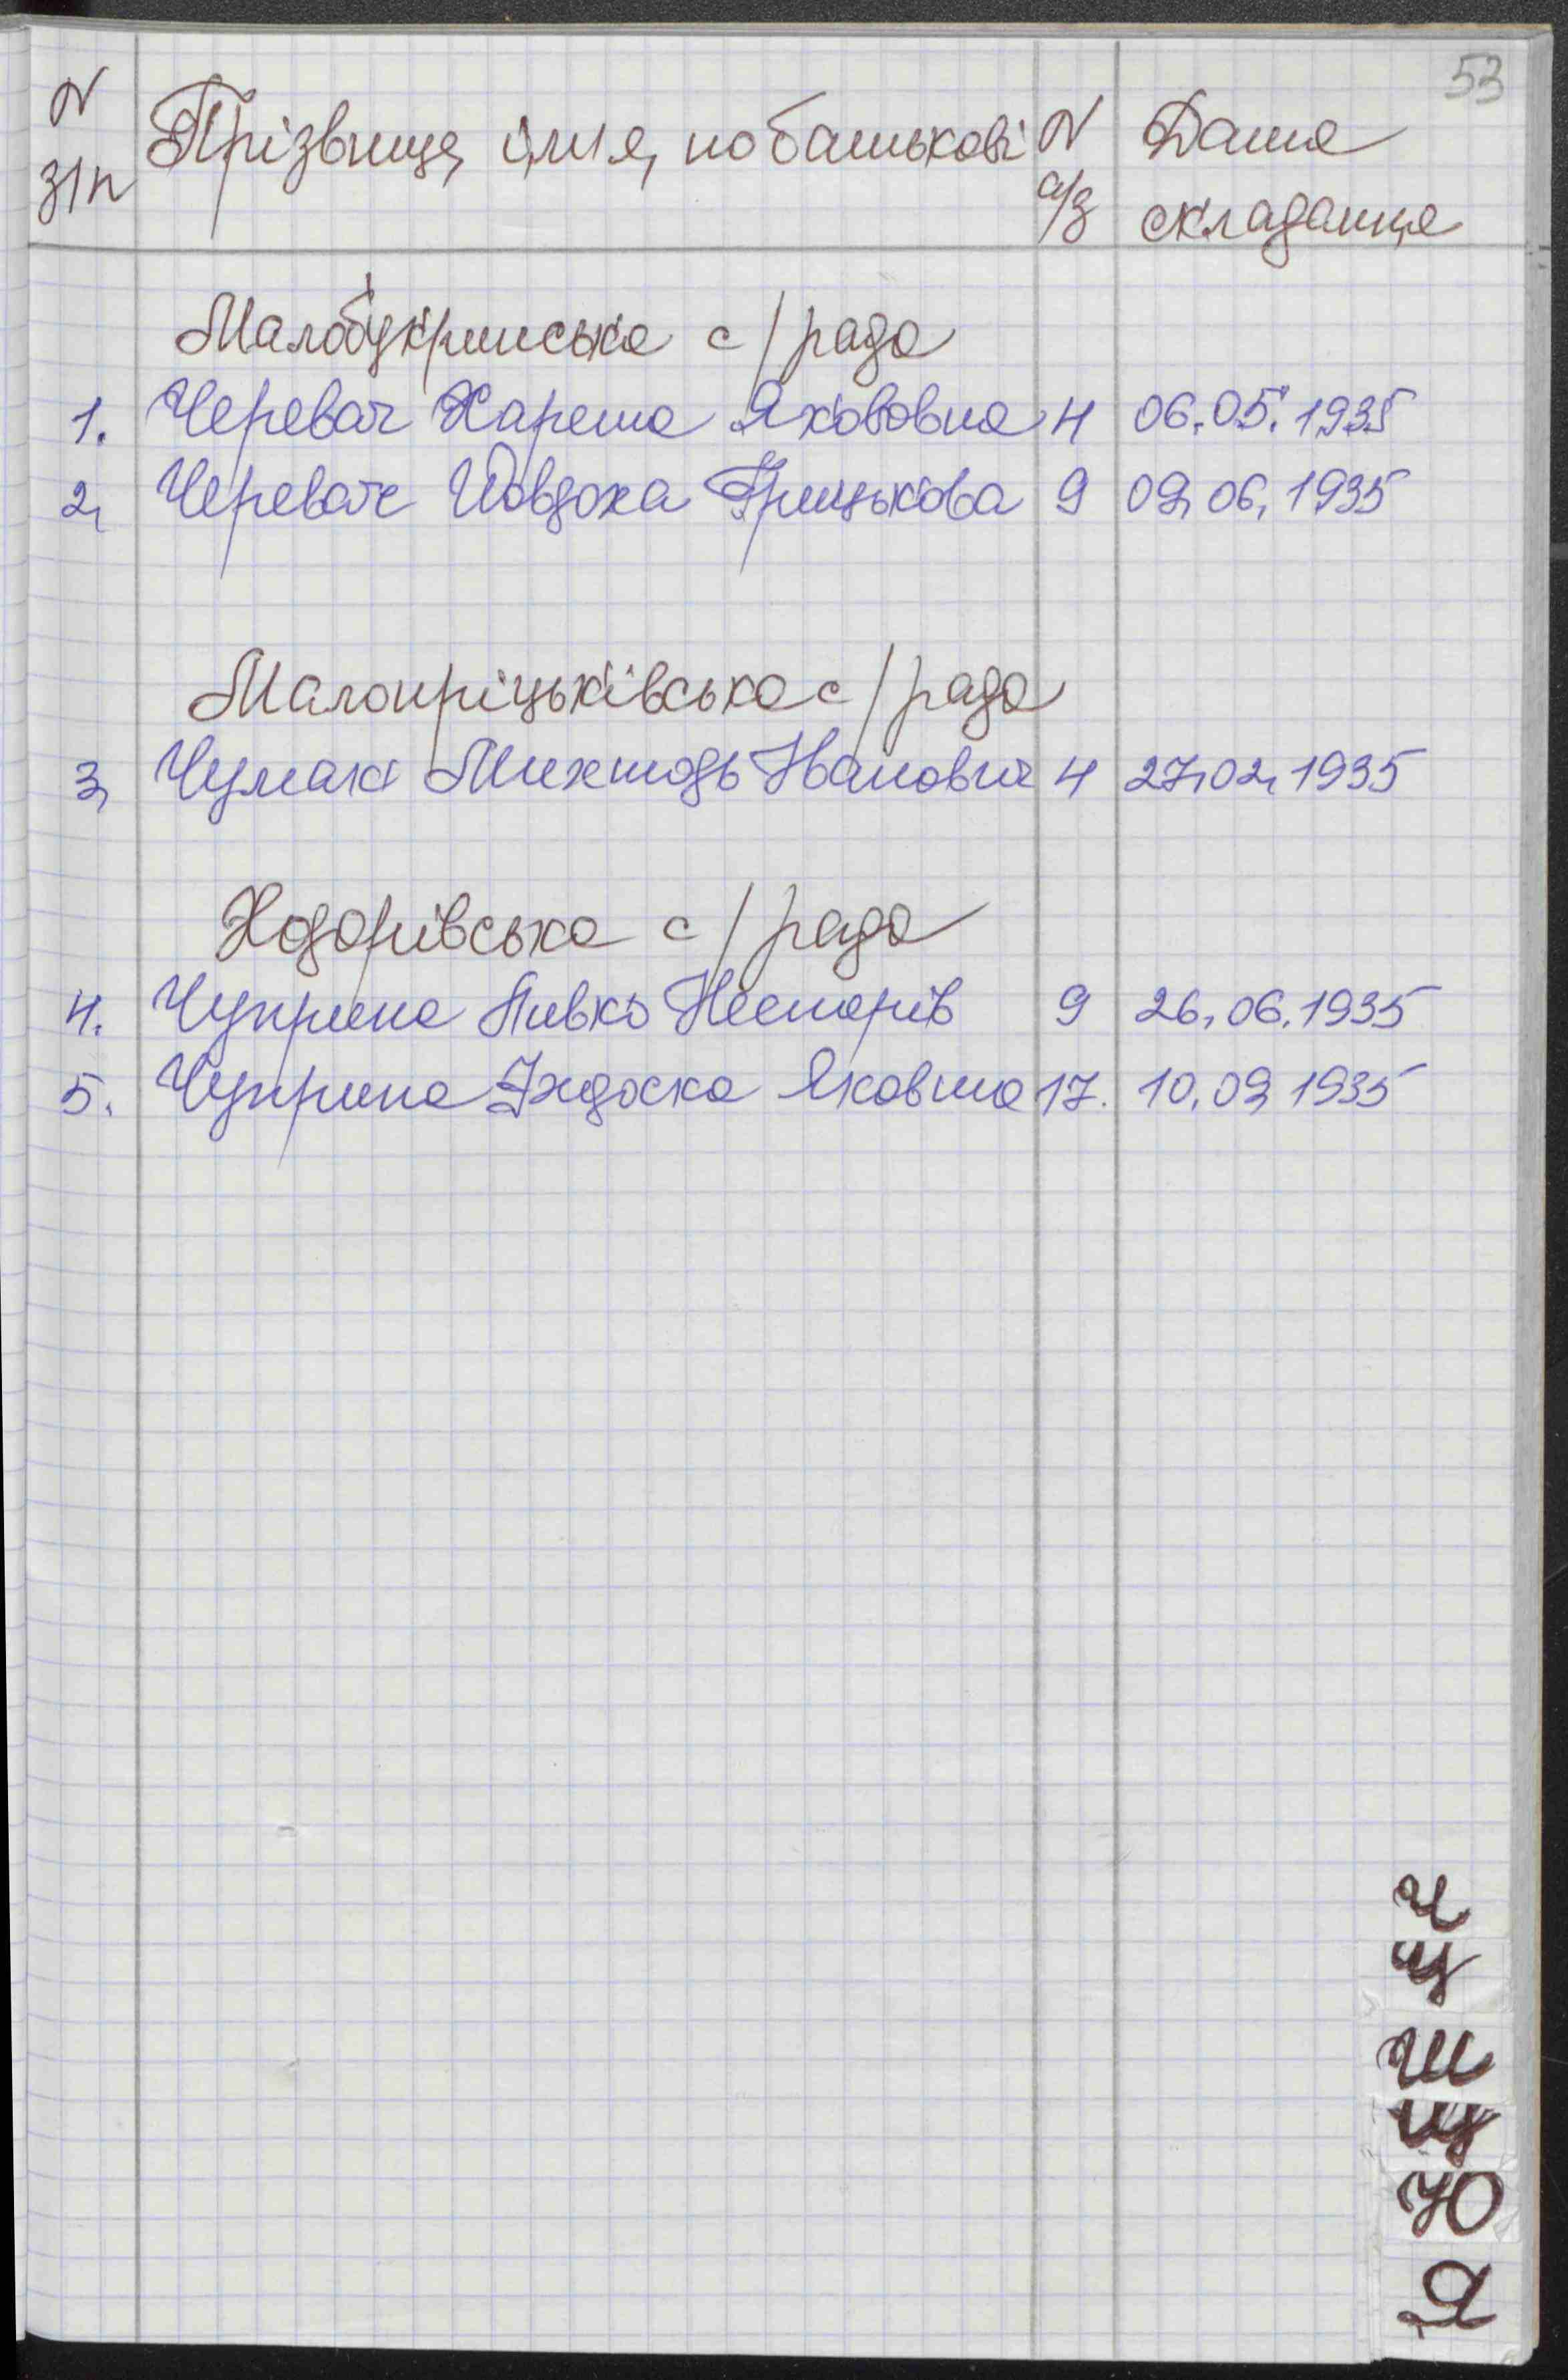 53
N з/п Прізвище, ім'я, по батькові N а/з Дата складання
Малобукринська с/рада
1. Черевач Харета Яковівна 4 06.05.1935
2. Черевач Йовдоха Грицькова 9 09.06.1935
Малопріцьківська с/рада
3. Чумак Иванович 4 27.02.1935
Ходорівська с/рада
4. Чуприна Пивко Несторів 9 26.06.1935
5. Чуприна Яковна 17. 10.09 1935
Ч
Ц
Ш
Щ
Ю
Я